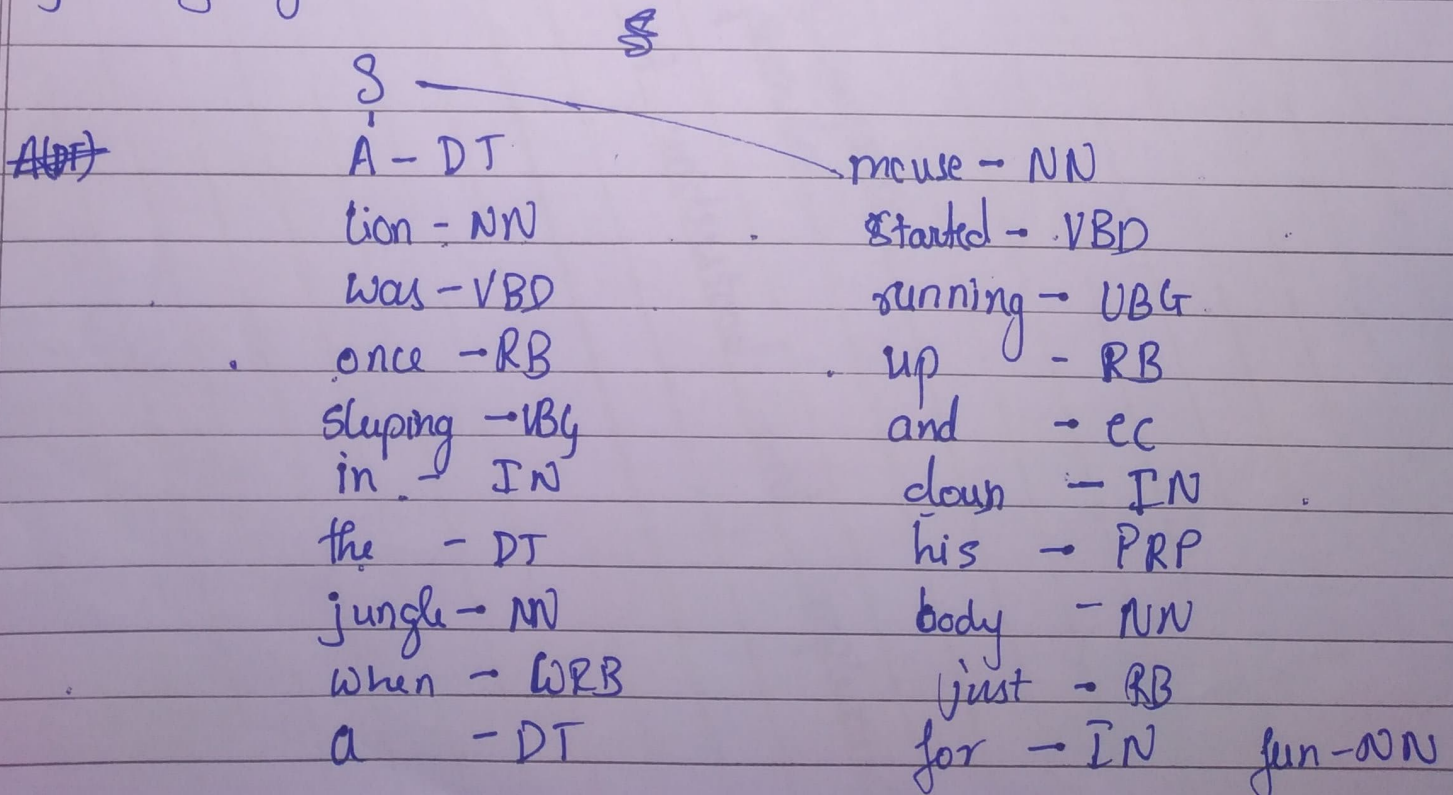 S
A - DT
lion - NN
was - VBD
once - RB
sleeping - VBG
in - IN
the - DT
jungle - NN
when - WRB
a - DT
mouse - NN
started - VBD
running - VBG
up - RB
and - CC
down - IN
his - PRP
body - NN
just - RB
for - IN fun - NN